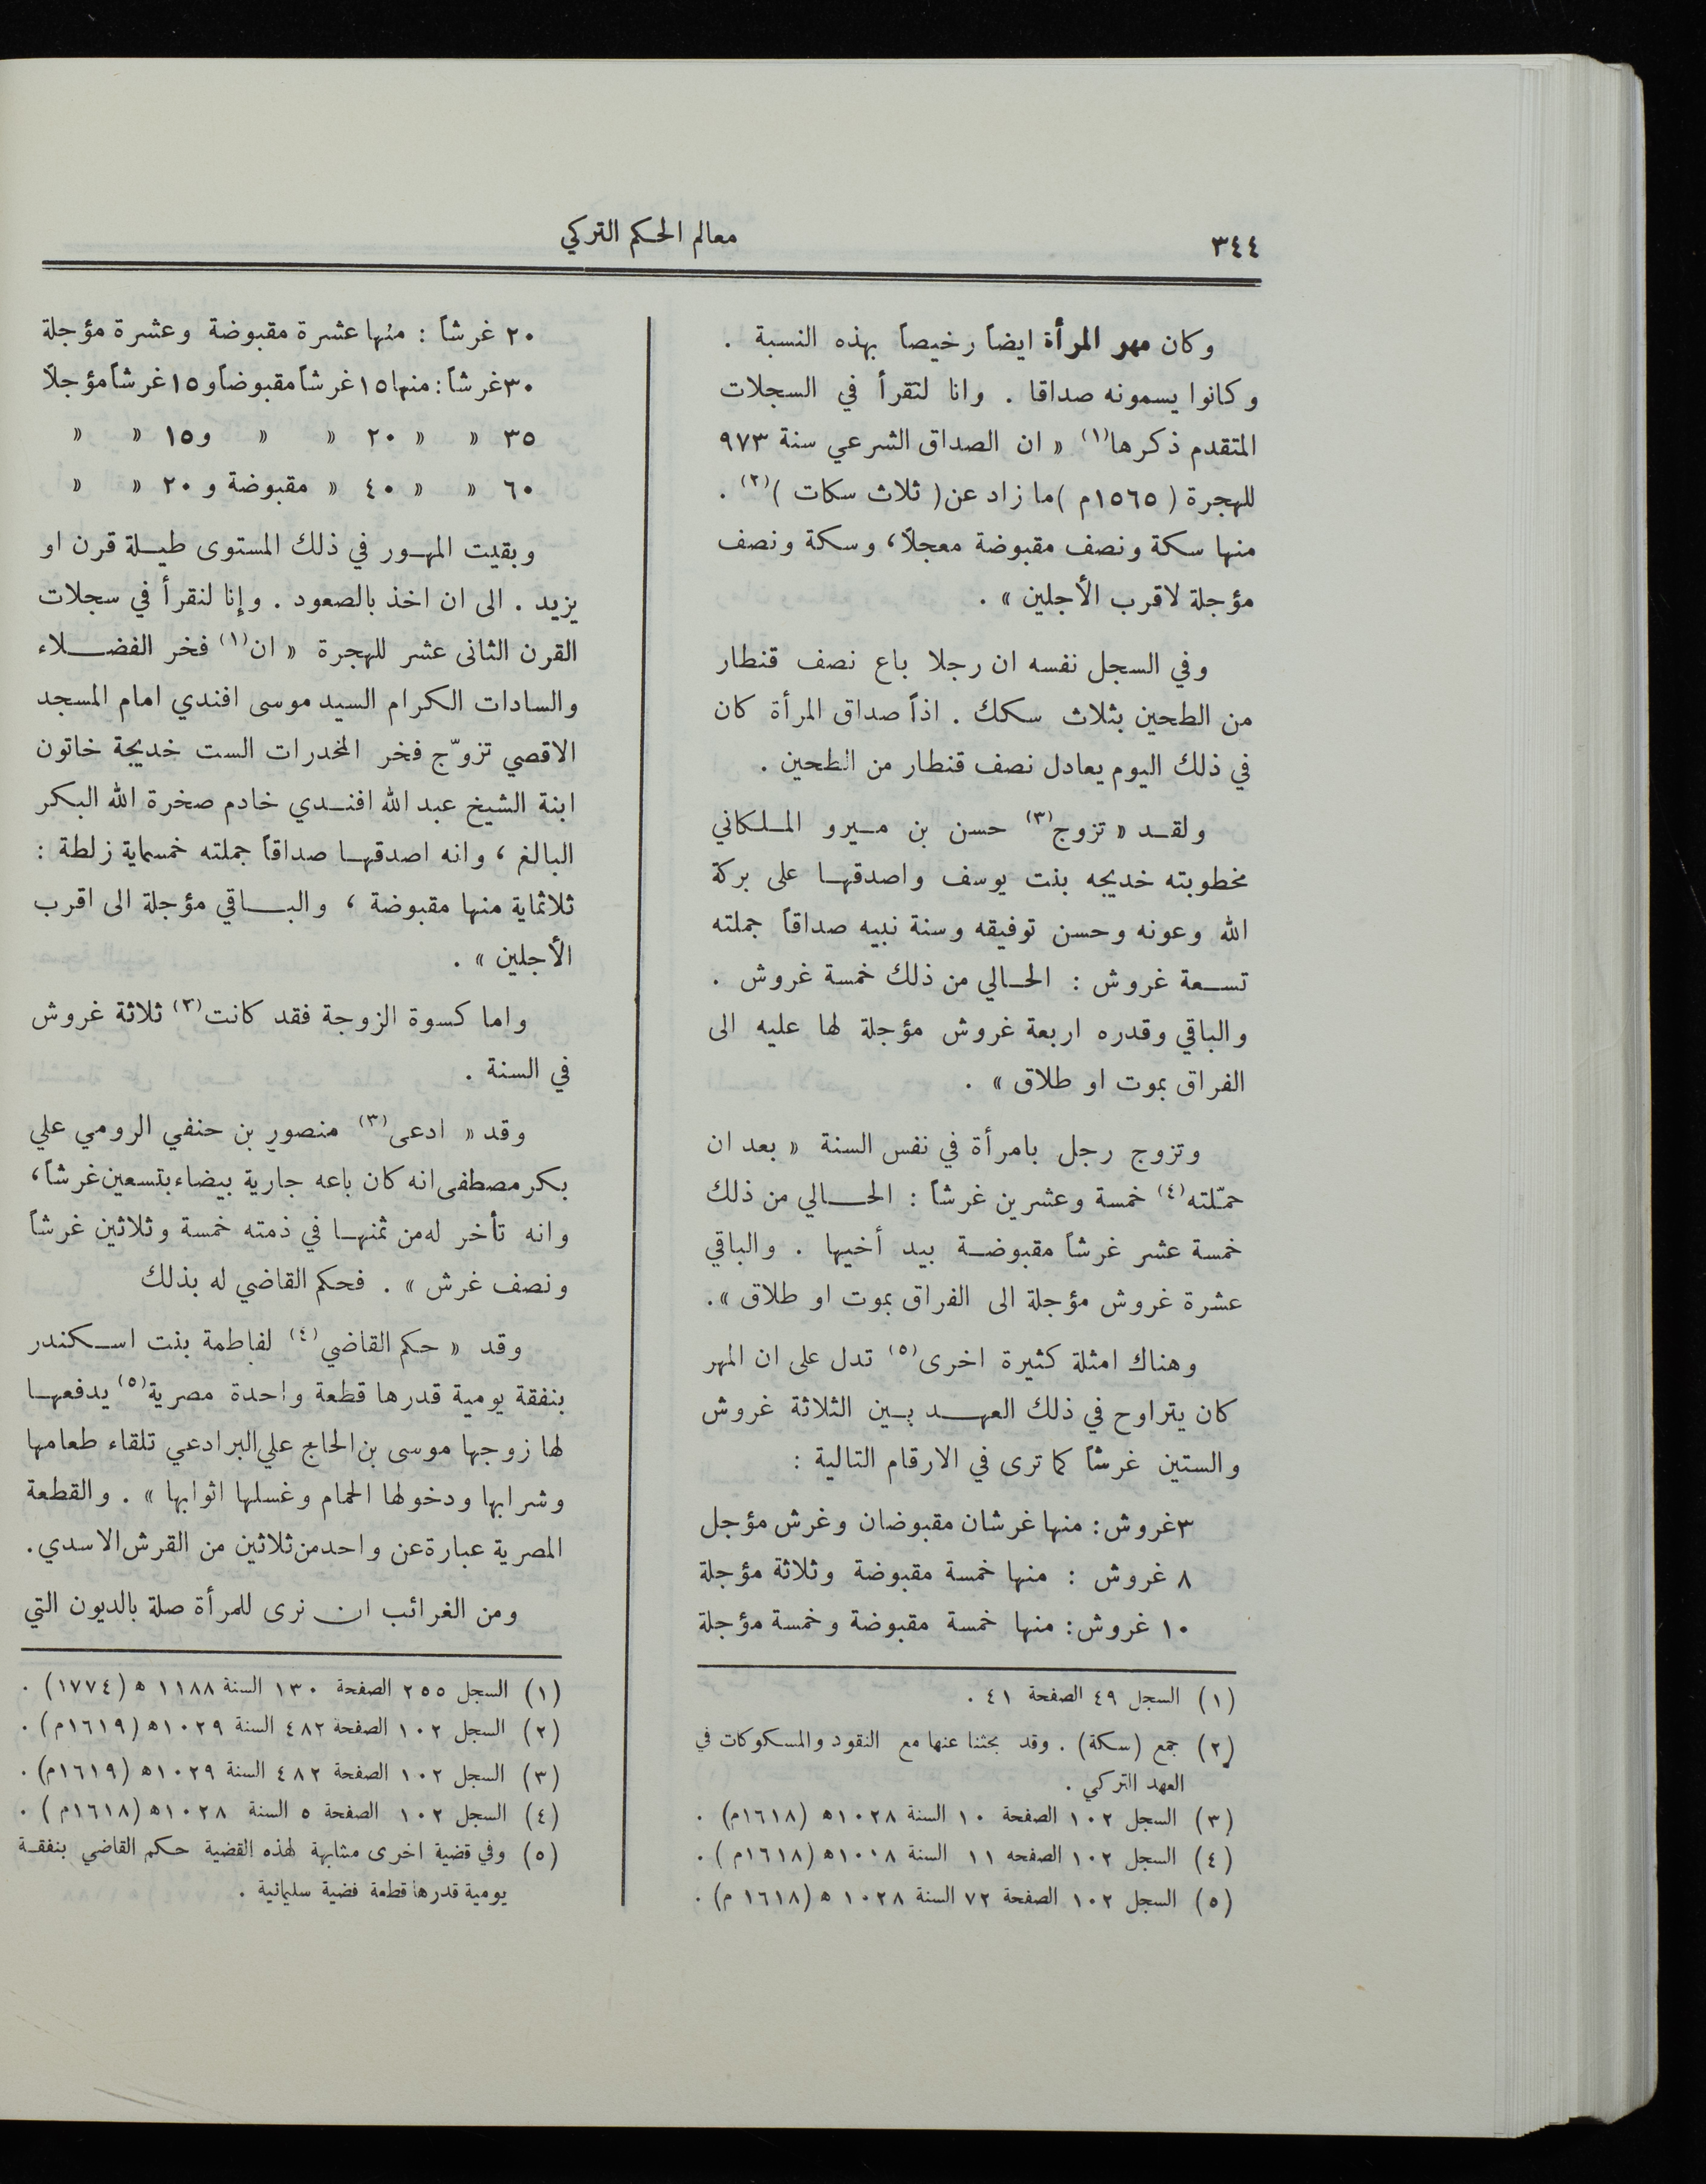 ٣٤٤
معالم الحكم التركي
وكان مهر المرأة ايضاً رخيصاً بهذه النسبة .
وكانوا يسمونه صداقا . وانا لنقرأ في السجلات
المتقدم ذكرها(١) « ان الصداق الشرعي سنة ٩٧٣
للهجرة ( ١٥٦٥م ) ما زاد عن ( ثلاث سكات )(٢) .
منها سكة ونصف مقبوضة معجلاً، وسكة ونصف
مؤجلة لاقرب الأجلين » .
وفي السجل نفسه ان رجلا باع نصف قنطار
من الطحين بثلاث سكك . اذاً صداق المرأة كان
في ذلك اليوم يعادل نصف قنطار من الطحين .
ولقد « تزوج(٣) حسن بن ميرو الملكاني
مخطوبته خديجه بنت يوسف واصدقها على بركة
الله وعونه وحسن توفيقه وسنة نبيه صداقاً جملته
تسعة غروش : الحالي من ذلك خمسة غروش .
والباقي وقدره اربعة غروش مؤجلة لها عليه الى
الفراق بموت او طلاق » .
وتزوج رجل بامرأة في نفس السنة « بعد ان
حمّلته(٤) خمسة وعشرين غرشاً : الحالي من ذلك
خمسة عشر غرشاً مقبوضة بيد أخيها . والباقي
عشرة غروش مؤجلة الى الفراق بموت او طلاق ».
وهناك امثلة كثيرة اخرى(٥) تدل على ان المهر
كان يتراوح في ذلك العهد بين الثلاثة غروش
والستين غرشاً كما ترى في الارقام التالية :
٣ غروش : منها غرشان مقبوضان وغرش مؤجل
٨ غروش : منها خمسة مقبوضة وثلاثة مؤجلة
١٠ غروش : منها خمسة مقبوضة وخمسة مؤجلة
(١) السجل ٤٩ الصفحة ٤١ .
(٢) جمع (سكة) . وقد بحثنا عنها مع النقود والمسكوكات في
العهد التركي .
(٣) السجل ١٠٢ الصفحة ١٠ السنة ١٠٢٨ه (١٦١٨م) .
(٤) السجل ١٠٢ الصفحه ١١ السنة ١٠١٨ه (١٦١٨م ) .
(٥) السجل ١٠٢ الصفحة ٧٢ السنة ١٠٢٨ ه (١٦١٨ م) .
٢٠ غرشاً : منها عشرة مقبوضة وعشرة مؤجلة
٣٠ غرشاً : منها ١٥ غرشاً مقبوضاً و ١٥ غرشاً مؤجلاً
٣٥ « « ٢٠ « « و١٥ « «
٦٠ « « ٤٠ « مقبوضة و ٢٠ « «
وبقيت المهور في ذلك المستوى طيلة قرن او
يزيد . الى ان اخذ بالصعود . وإنا لنقرأ في سجلات
القرن الثانى عشر للهجرة « ان(١) فخر الفضلاء
والسادات الكرام السيد موسى افندي امام المسجد
الاقصي تزوّج فخر المخدرات الست خديجة خاتون
ابنة الشيخ عبد الله افندي خادم صخرة الله البكر
البالغ ، وانه اصدقها صداقاً جملته خمسماية زلطة :
ثلاثماية منها مقبوضة ، والباقي مؤجلة الى اقرب
الأجلين » .
واما كسوة الزوجة فقد كانت(٢) ثلاثة غروش
في السنة .
وقد « ادعى(٣) منصور بن حنفي الرومي علي
بكر مصطفى انه كان باعه جارية بيضاء بتسعين غرشاً،
وانه تأخر له من ثمنها في ذمته خمسة وثلاثين غرشاً
ونصف غرش » . فحكم القاضي له بذلك
وقد « حكم القاضي(٤) لفاطمة بنت اسكندر
بنفقة يومية قدرها قطعة واحدة مصرية(٥) يدفعها
لها زوجها موسى بن الحاج علي البرادعي تلقاء طعامها
وشرابها ودخولها الحمام وغسلها اثوابها » . والقطعة
المصرية عبارة عن واحد من ثلاثين من القرش الاسدي.
ومن الغرائب ان نرى للمرأة صلة بالديون التي
(١) السجل ٢٥٥ الصفحة ١٣٠ السنة ١١٨٨ ه (١٧٧٤) .
(٢) السجل ١٠٢ الصفحة ٤٨٢ السنة ١٠٢٩ه (١٦١٩م) .
(٣) السجل ١٠٢ الصفحة ٤٨٢ السنة ١٠٢٩ه (١٦١٩م) .
(٤) السجل ١٠٢ الصفحة ٥ السنة ١٠٢٨ه (١٦١٨م ) .
(٥) وفي قضية اخرى مشابهة لهذه القضية حكم القاضي بنفقة
يومية قدرها قطعة فضية سليمانية .